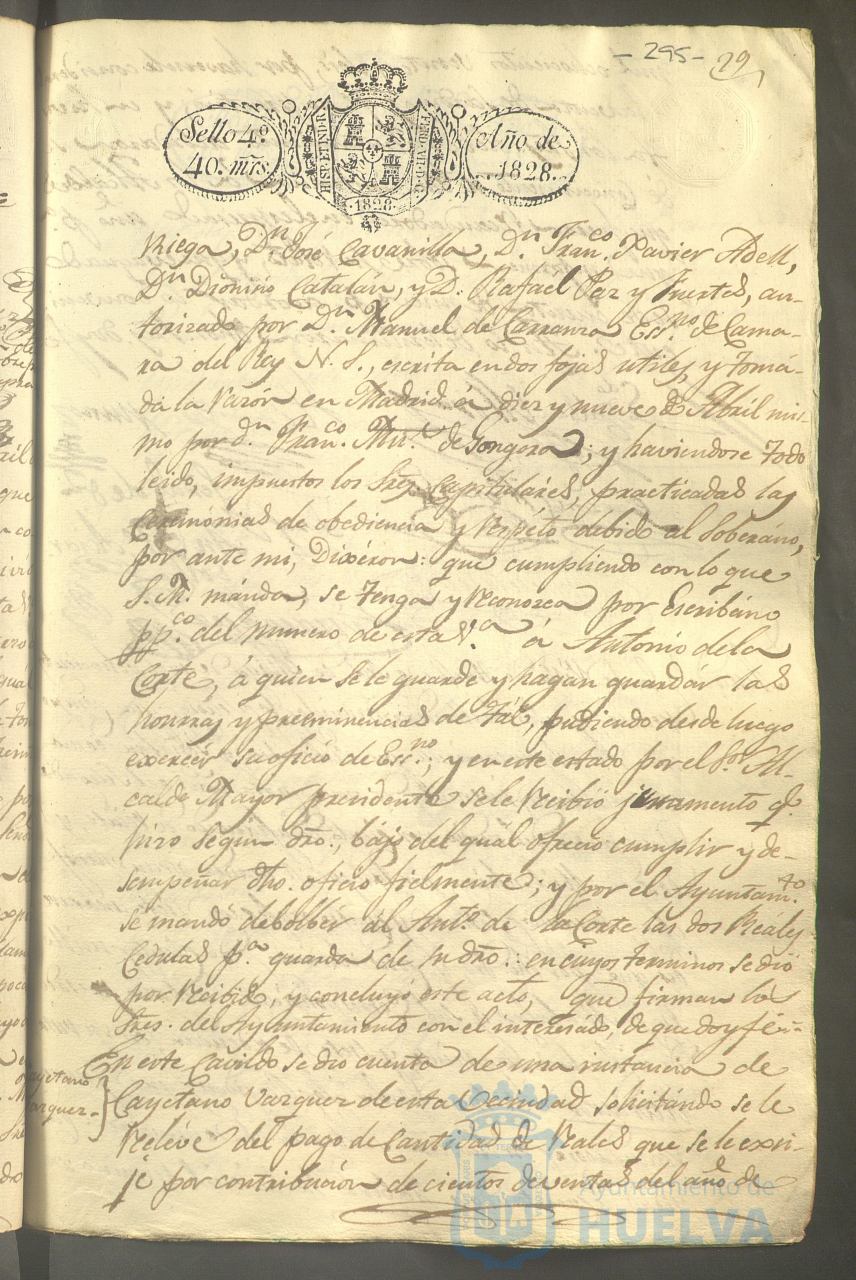 - 295 - 29
Sello 4º
40. mrs.
HISP. ET IND. R
FERD. VII. D. G.
1828
Año de
1828.
Riega, Dn. José Cavanilla, Dn. Franco. Xavier Adell,
Dn. Dionisio Catalán, y D. Rafael Paz y Fuertes, au-
torizado por Dn. Manuel de Carranza Essno. de Cama-
ra del Rey N. S., escrita en dos fojas utiles, y toma-
da la razón en Madrid á diez y nueve de Abril mis-
mo por dn. Franco. de Gongora; y haviendose todo
leido, impuestos los Sres. Capitulares, practicadas las
Ceremónias de obediencia y respéto debido al Soberáno,
por ante mi, Dixéron: que cumpliendo con lo que
S. M. mánda, se tenga y reconozca por Escribáno
ppco. del numero de esta Va. á Antonio de la
Corte, á quien se le guarde y hagan guardár las
honrras y preeminencias de tál, pudiendo desde luego
exercér su oficio de Essno.; y en este estado por el Sor. Al-
calde Mayor presidente se le recibió juramento q.
hizo segun dro., bájo del quál ofrecio cumplir y de-
sempeñar dho. oficio fielmente; y por el Ayuntamto.
se mandó debolbér al Anto. de la Corte las dos Reáles
Cedulas pa. guarda de su dro.: en cuyos terminos se dió
por recibido, y concluyó este acto, que firman los
Sres. del Ayuntamiento con el interesádo, de que doy fé.-
En este Cavildo se dio cuenta de una instancia de
Cayetano
Vazquez
Cayetano Vazquez de esta Vecindad solicitándo se le
reléve del pago de Cantidad de Reales que se le exi-
je por contribución de cientos de ventas del año de
Ayuntamiento de
HUELVA